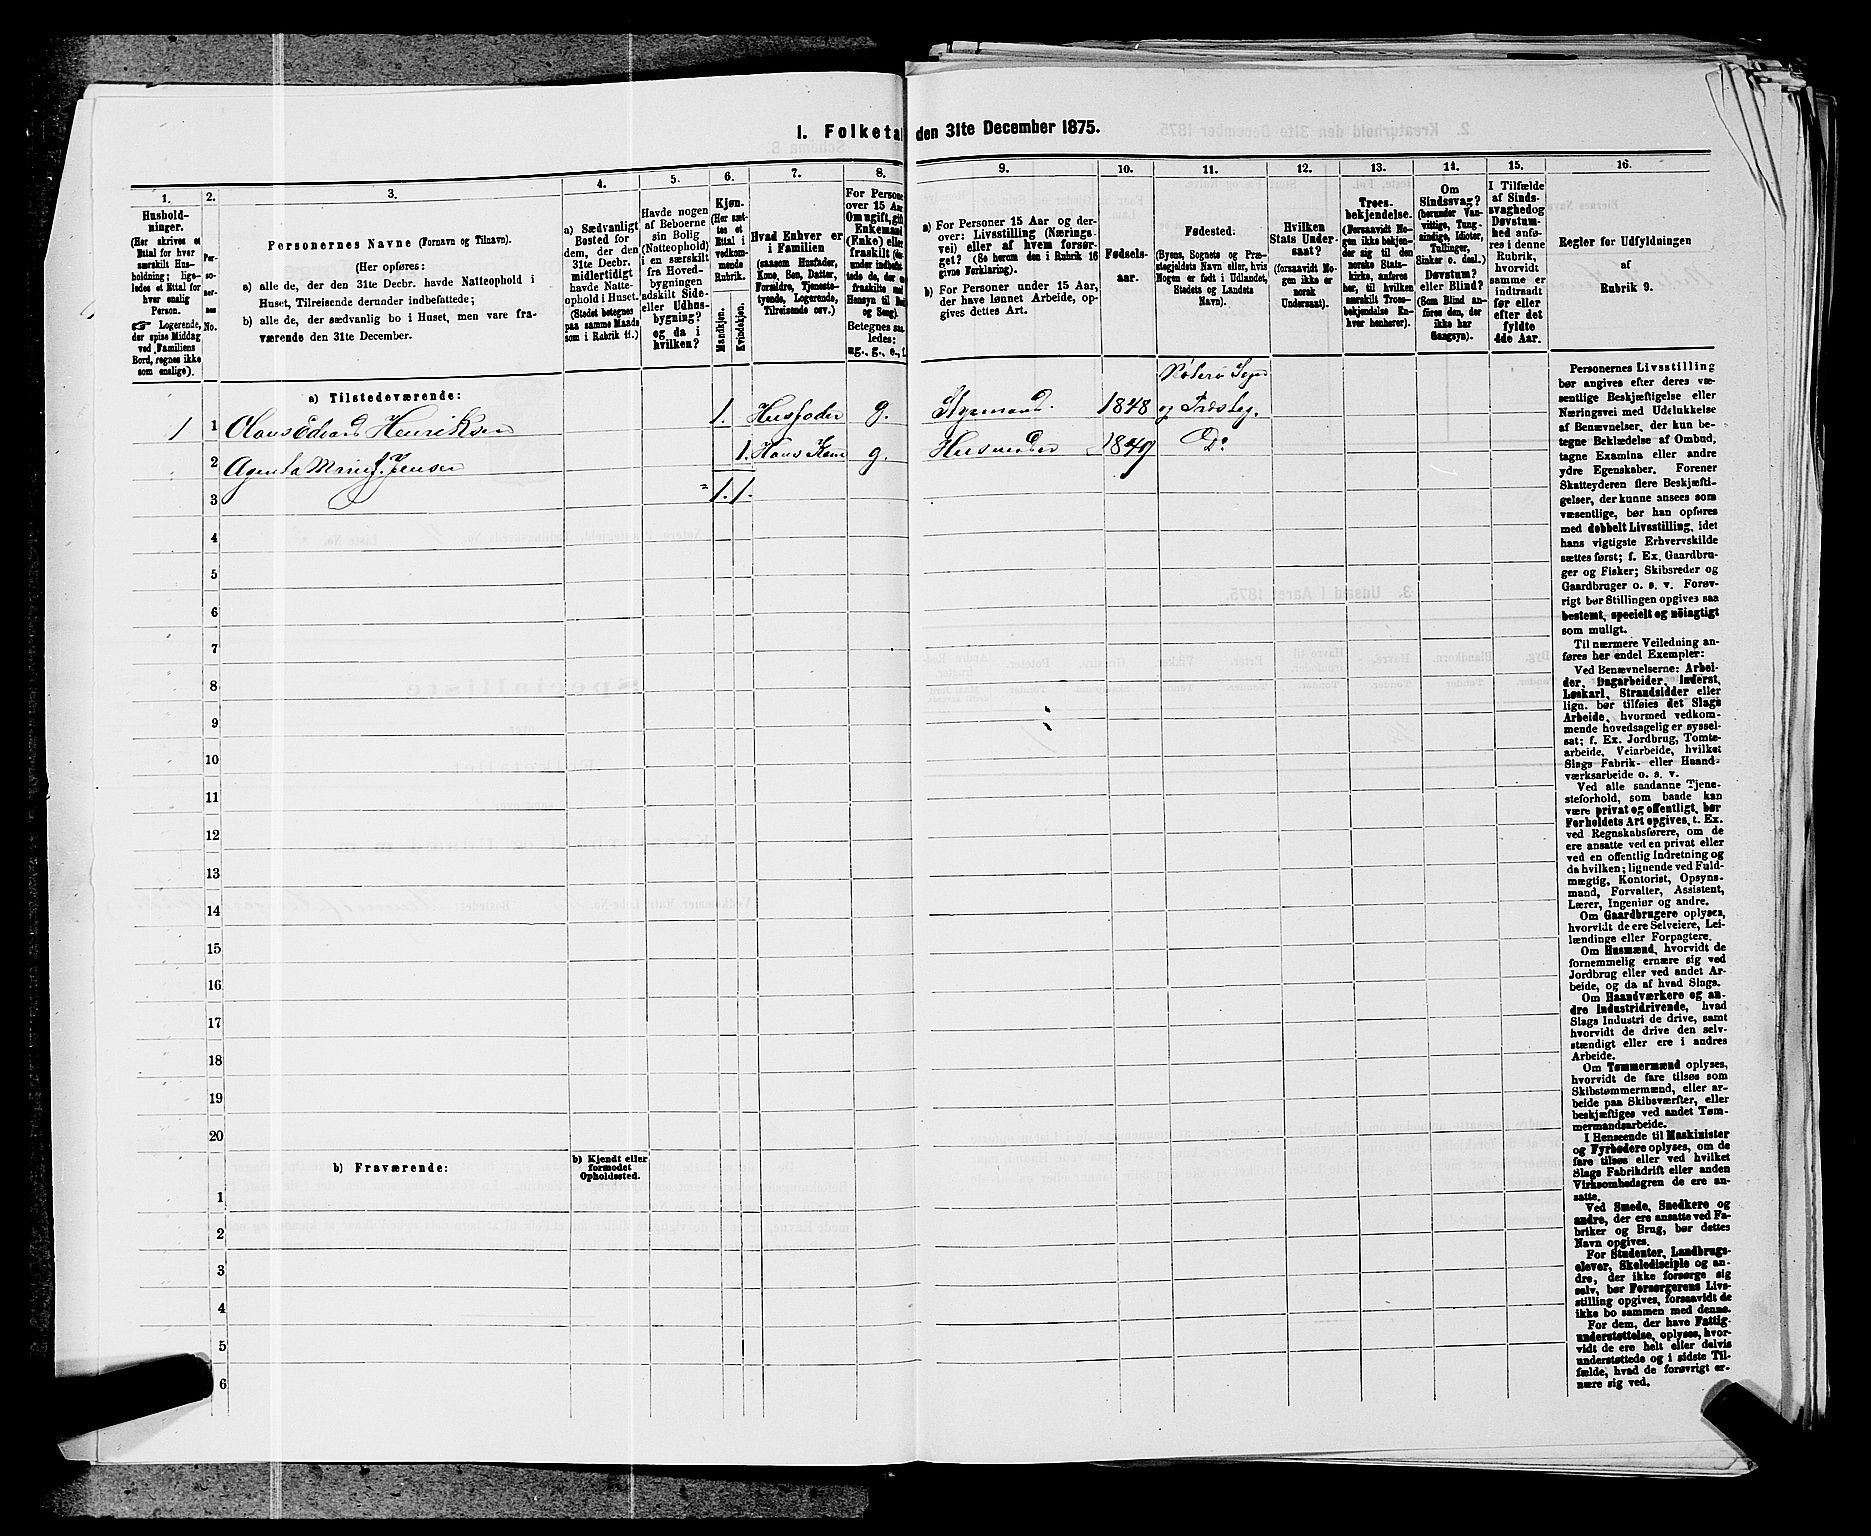 I. Folketal den 31te December 1875.
1.
Hushold-
ninger.
(Her skrives et
Ettal for hver
særskilt Hus-
holdning; lige-
ledes et Ettal for
hver enslig
Person.
☞ Logerende,
der spise Middag
ved Familiens
Bord, regnes ikke
som enslige).
2.
Per-
so-
ner-
nes
No.
3.
Personernes Navne (Fornavn og Tilnavn).
(Her opføres:
a) alle de, der den 31te Decbr. havde Natteophold i
Huset, Tilreisende derunder indbefattede;
b) alle de, der sædvanlig bo i Huset, men vare fra-
værende den 31te December.
4.
a) Sædvanligt
Bosted for
dem, der den
31te Decbr.
midlertidigt
havde Natte-
ophold i Huset.
(Stedet betegnes
paa samme Maade
som i Rubrik 11.)
5.
Havde nogen
af Beboerne
sin Bolig
(Natteophold)
i en særskilt
fra Hoved-
bygningen
adskilt Side-
eller Udhus-
bygning?
og da i
hvilken?
6.
Kjøn.
(Her sæt-
tes et
Ettal i
vedkom-
mende
Rubrik.
Mandkjøn.
Kvindekjøn.
7.
Hvad Enhver er
i Familien
(saasom Husfader,
Kone, Søn, Datter,
Forældre, Tjeneste-
tyende, Logerende,
Tilreisende osv.)
8.
For Persone
over 15 Aar
Om ugift, gift
Enkemand
(Enke) eller
fraskilt
Betegnes saa-
ledes:
ug., g., e., f.
9.
a) For Personer 15 Aar og der-
over: Livsstilling (Nærings-
vei) eller af hvem forsør-
get? (Se herom den i Rubrik 16
givne Forklaring).
b) For Personer under 15 Aar,
der have lønnet Arbeide, op-
gives dettes Art.
10.
Fødsels-
aar.
11.
Fødested.
(Byens, Sognets og Præ-
stegjeldets Navn eller, hvis
Nogen er født i Udlandet,
Stedets og Landets
Navn).
12.
Hvilken
Stats Under-
saat?
(forsaavidt No-
gen ikke er
norsk
Undersaat).
13.
Troes-
bekjendelse.
(Forsaavidt No-
gen ikke bekjen-
der sig til den
norske Stats-
kirke, anføres
her, til hvilken
særskilt Troes-
bekjendelse En-
hver henhører).
14.
Om
Sindssvag?
(herunder Van-
vittige, Tung-
sindige, Idioter,
Tullinger,
Sinker o. desl.)
Døvstum?
eller Blind?
(Som Blind an-
føres den, der
ikke har
Gangsyn).
15.
I Tilfælde
af Sinds-
svaghed og
Døvstum-
hed anfø-
res i denne
Rubrik,
hvorvidt
samme er
indtraadt
før eller
efter det
fyldte
4de Aar.
16.
Regler for Udfyldningen
af
Rubrik 9.
a) Tilstedeværende:
1 1 Olaus Edvard Henriksen 1. Husfader g. 1848
2 Agenta Jensen 1. Hans Kone g. Husmoder 1849 Do
3 1. 1.
4
5
6
7
8
9
10
11
12
13
14
15
16
17
18
19
20
b) Fraværende:
b) Kjendt eller
formodet
Opholdssted.
1
2
3
4
5
6
Personernes Livsstilling
bør angives efter deres væ-
sentlige Beskjæftigelse eller
Næringsvei med Udelukkelse
af Benævnelser, der kun be-
tegne Beklædelse af Ombud,
tagne Examina eller andre
ydre Egenskaber. Forener
Skatteyderen flere Beskjæfti-
gelser, der kunne ansees som
væsentlige, bør han opføres
med dobbelt Livsstilling, idet
hans vigtigste Erhvervskilde
sættes først; f. Ex. Gaardbru-
ger og Fisker; Skibsreder og
Gaardbruger o. s. v. Forøv-
rigt bør Stillingen opgives saa
bestemt, specielt og nöiagtigt
som muligt.
Til nærmere Veiledning an-
føres her endel Exempler:
Ved Benævnelserne: Arbei-
der, Dagarbeider, Inderst,
Løskarl, Strandsidder eller
lign. bør tilføies det Slags
Arbeide, hvormed vedkom-
mende hovedsagelig er syssel-
sat; f. Ex. Jordbrug, Tomte-
arbeide, Veiarbeide, hvilket
Slags Fabrik- eller Haand-
værksarbeide o. s. v.
Ved alle saadanne Tjene-
steforhold, som baade kan
være privat og offentligt, bør
Forholdets Art opgives, t. Ex.
ved Regnskabsførere, om de
ere ansatte ved en privat eller
ved en offentlig Indretning og
da hvilken; lignende ved Fuld-
mægtig, Kontorist, Opsyns-
mand, Forvalter, Assistent,
Lærer, Ingeniør og andre.
Om Gaardbrugere oplyses,
hvorvidt de ere Selveiere, Lei-
lændinge eller Forpagtere.
Om Husmænd, hvorvidt de
fornemmelig ernære sig ved
Jordbrug eller ved andet Ar-
beide, og da af hvad Slags.
Om Haandværkere og an-
dre Industridrivende, hvad
Slags Industri de drive, samt
hvorvidt de drive den selv-
stændigt eller ere i andres
Arbeide.
Om Tømmermænd oplyses,
hvorvidt de fare tilsøs som
Skibstømmermænd, eller ar-
beide paa Skibsværfter, eller
beskjæftiges ved andet Tøm-
mermandsarbeide.
I Henseende til Maskinister
og Fyrbødere oplyses, om de
fare tilsøs eller ved hvilket
Slags Fabrikdrift eller anden
Virksomhedsgren de ere an-
satte.
Ved Smede, Snedkere og
andre, der ere ansatte ved Fa-
briker og Brug, bør dettes
Navn opgives.
For Studenter, Landbrugs-
elever, Skoledisciple og an-
dre, der ikke forsørge sig
selv, bør Forsørgerens Livs-
stilling opgives, forsaavidt de
ikke bo sammen med denne.
For dem, der have Fattig-
understøttelse, oplyses, hvor-
vidt de ere helt eller delvis
understøttede og i sidste Til-
fælde, hvad de forøvrigt er-
nære sig ved.